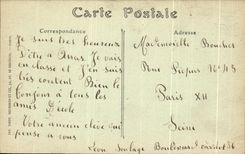 Carte Postale
Correspondance
Adresse
Je suis très heureux
d'être à Arras. Je vais
en classe et j'en suis
très content Bien le
bonjour à tous les
amis d'école
Votre ancien élève qui
pense à vous
Mademoiselle Bouchet
Rue N° 43
Paris XII
Seine
Léon Soulage Boulevard 36